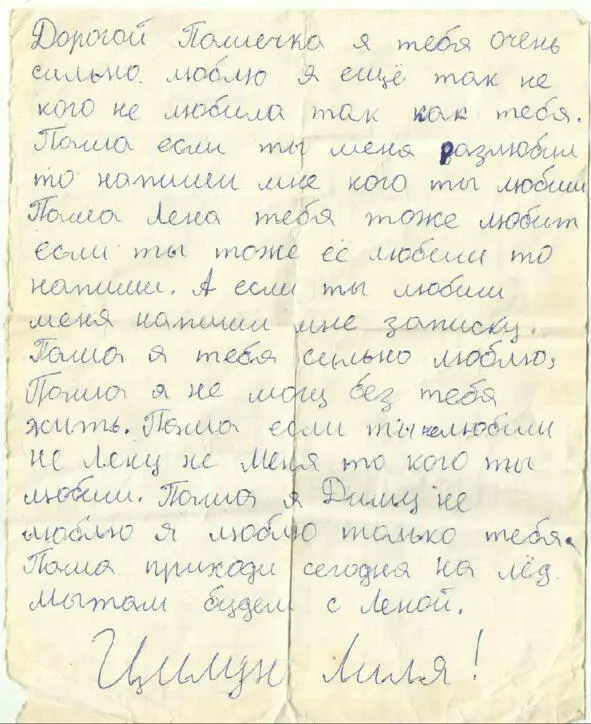 Дорогой Пашечка я тебя очень
сильно люблю я ещё так не
кого не любила так как тебя.
Паша если ты меня разлюбил
то напиши мне кого ты любиш
Паша Лена тебя тоже любит
если ты тоже её любиш то
напиши. А если ты любиш
меня напиши мне записку.
Паша я тебя сильно люблю,
Паша я не могу без тебя
жить. Паша если ты нелюбиш
не Лену не меня то кого ты
любиш. Паша я Диму не
люблю я люблю только тебя.
Паша приходи сегодня на лёд.
мытам будем с Леной.
Лилья!